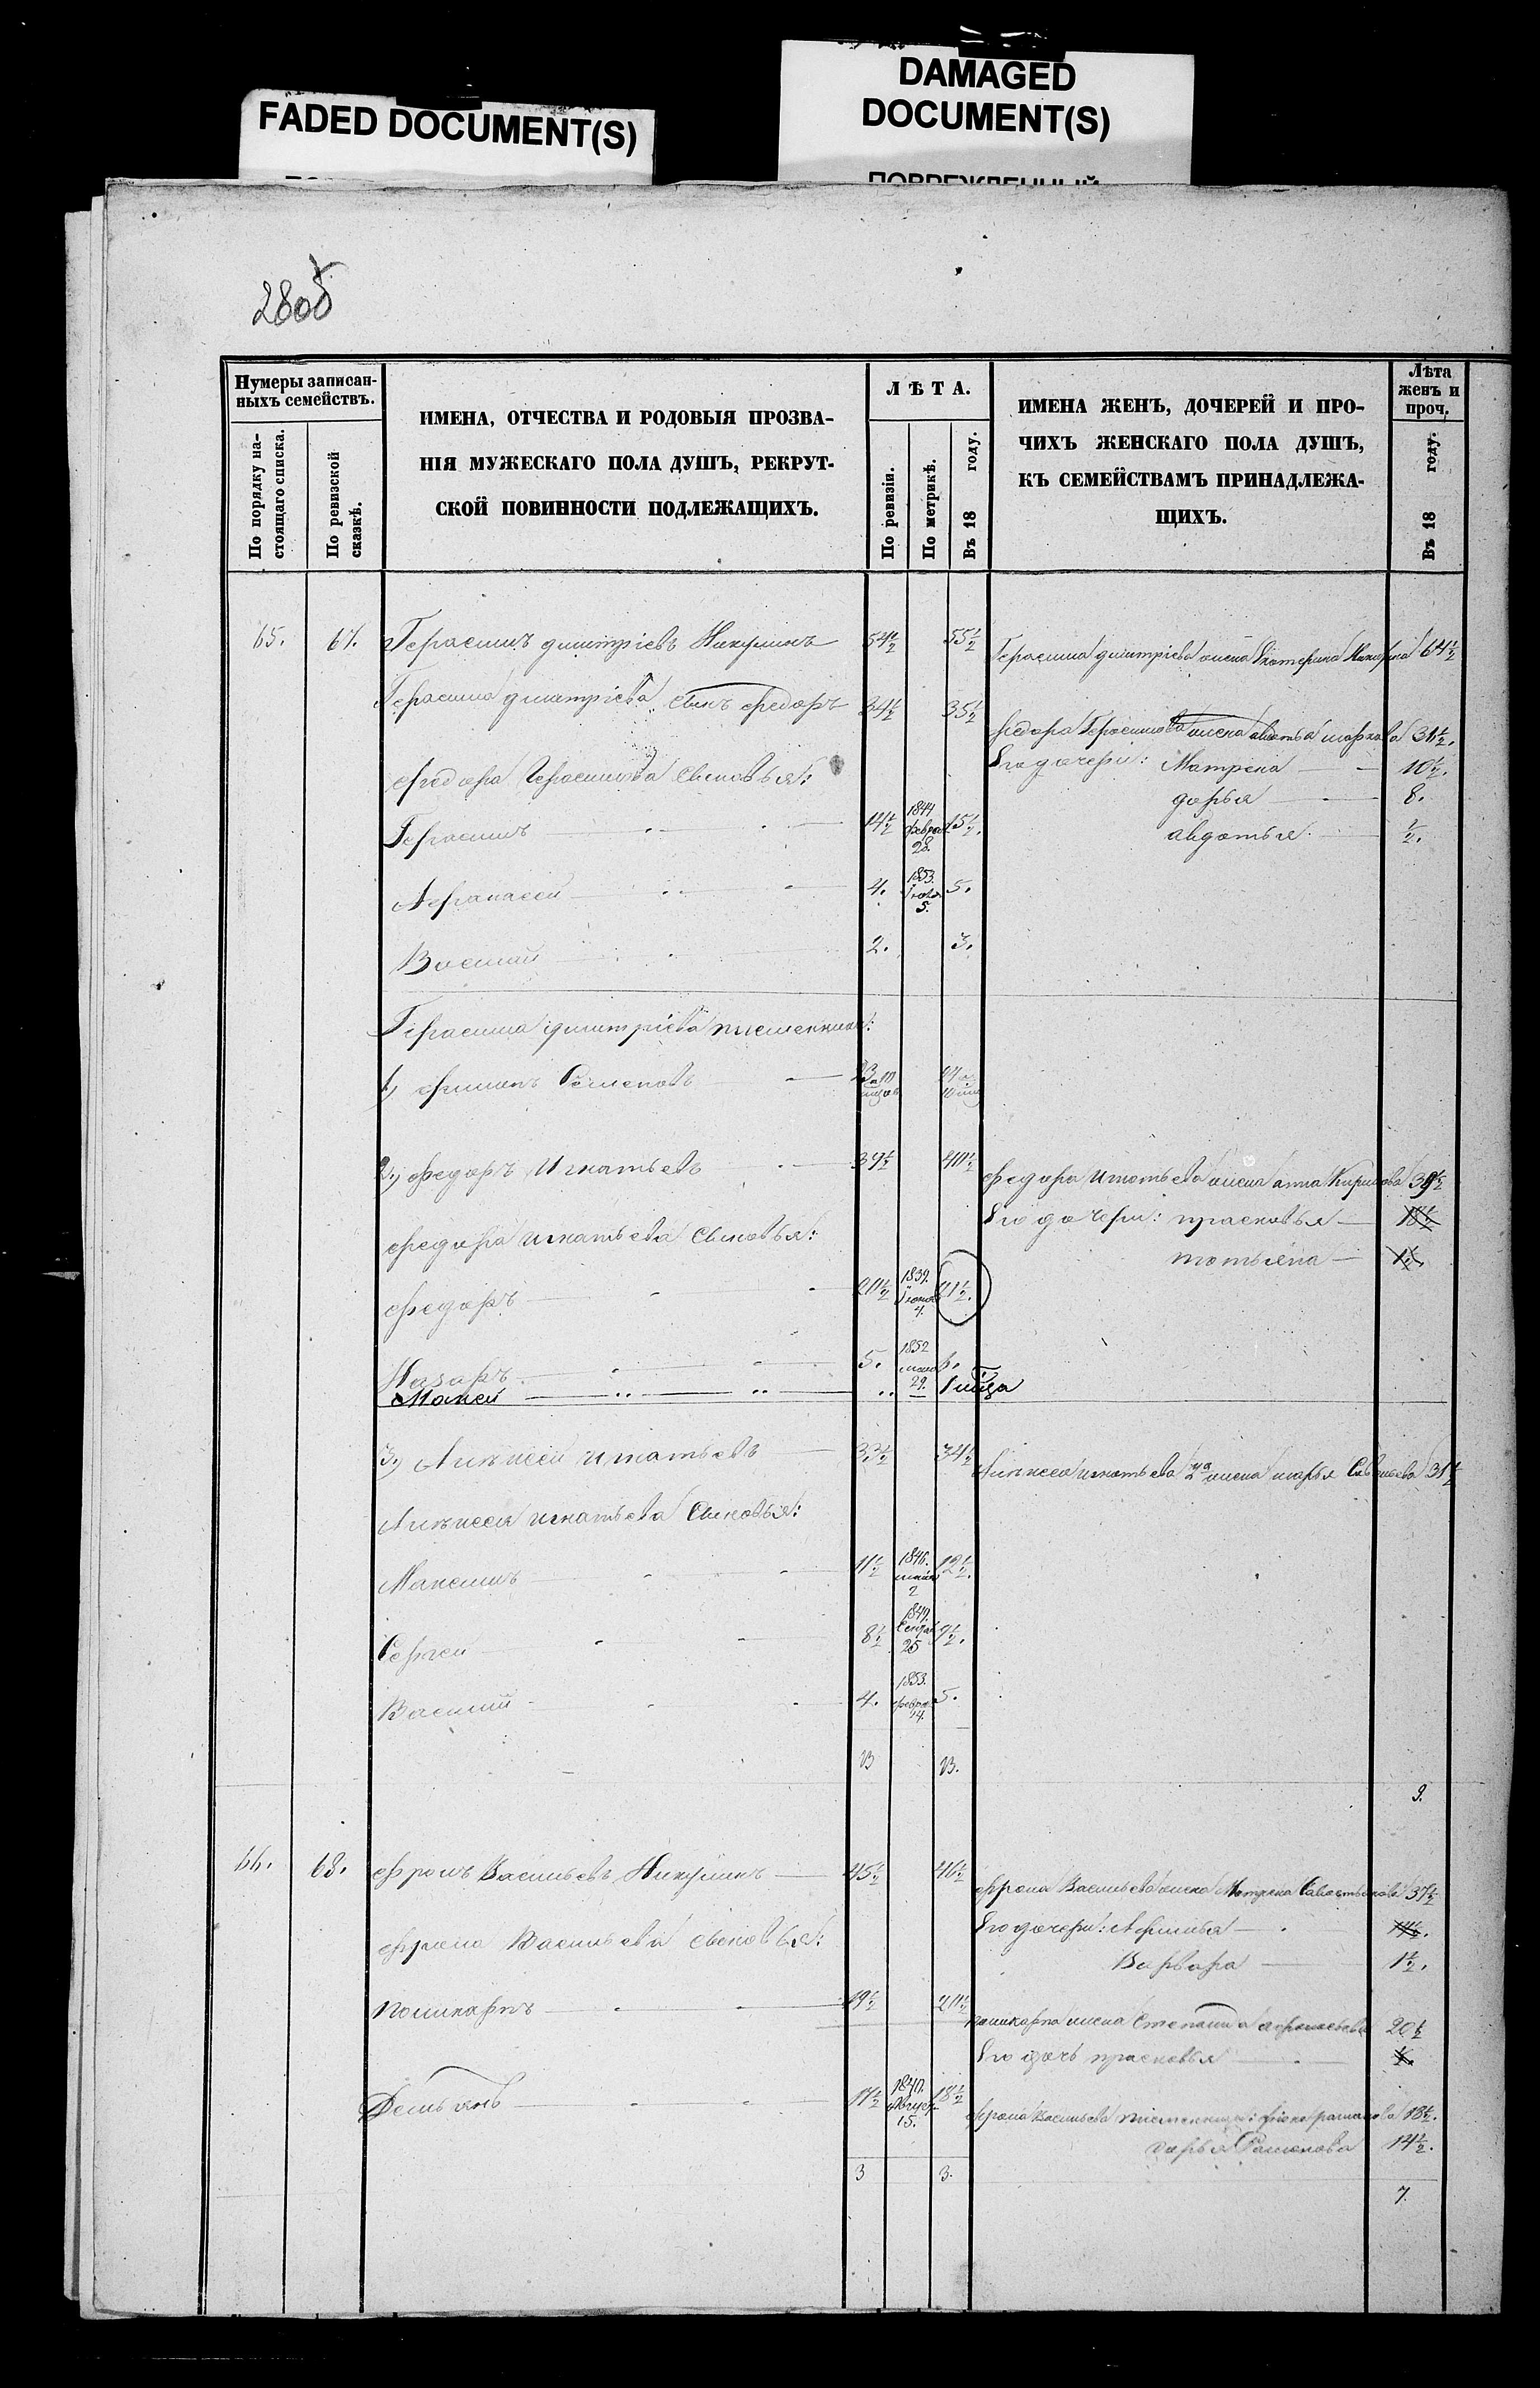 FADED DOCUMENT(S)
DAMAGED
DOCUMENT(S)
ПОВРЕЖДЕННЫЙ
280б
Нумеры записан-
ныхъ семействъ.
По порядку на-
стоящаго списка.
По ревизской
сказкѣ.
ИМЕНА, ОТЧЕСТВА И РОДОВЫЯ ПРОЗВА-
НІЯ МУЖЕСКАГО ПОЛА ДУШЪ, РЕКРУТ-
СКОЙ ПОВИННОСТИ ПОДЛЕЖАЩИХЪ.
ЛѢТА.
По ревизіи.
По метрикѣ.
Въ 18 году.
ИМЕНА ЖЕНЪ, ДОЧЕРЕЙ И ПРО-
ЧИХЪ ЖЕНСКАГО ПОЛА ДУШЪ,
КЪ СЕМЕЙСТВАМЪ ПРИНАДЛЕЖА-
ЩИХЪ.
Лѣта
женъ и
проч.
Въ 18 году.
65. 67. Герасимъ дмитріевъ Никулинъ 54½ 55½
Герасима дмитріева жена Екатерина 64½
Герасима дмитріева сынъ федоръ 34½ 35½
федора Герасимова жена авдотья маркова 31½.
федора Герасимова сыновья:
Его дочери: Матрена 10½.
дарья 8.
авдотья ½.
Герасимъ 14½ 1844 феврал 28. 15½.
Афанасей 4. 1853. 5. 5.
Василий 2. 3.
Герасима дмитріева племянники:
1) филипъ Семеновъ
2) федоръ Игнатьевъ 39½ 40½
федора Игнатьева жена анна Кирилова 39½
федора игнатьева сыновья:
Его дочери: прасковья 18½
татьяна
федоръ 20½ 1837. 4. 21½.
Назаръ 5. 1852 29. 6.
Мокей 1 мца
3) Алексей игнатьевъ 33½ 34½
Алексея игнатьева 2я жена марья Савельева 31½
Алексея игнатьева Сыновья:
Максимъ 11½ 1846. 2 12½.
Сергей 8½ 1849. Сентяб 25 9½.
Василий 4. 1853. феврал 14. 5.
13 13.
9.
66. 68. фролъ Васильевъ Никулинъ 45½ 46½
фрола Васильева жена Матрена Савостьянова 37½
фрола Васильева сыновья:
Его дочери: Афимья 14½.
Варвара 1½.
поликарпъ 19½ 20½
поликарпа жена Степанида 20½
Его дочь прасковья
Демьянъ 17½ 1840. Август 15. 18½
фрола Васильева племянницы: 18½.
дарья 14½.
3 3.
7.